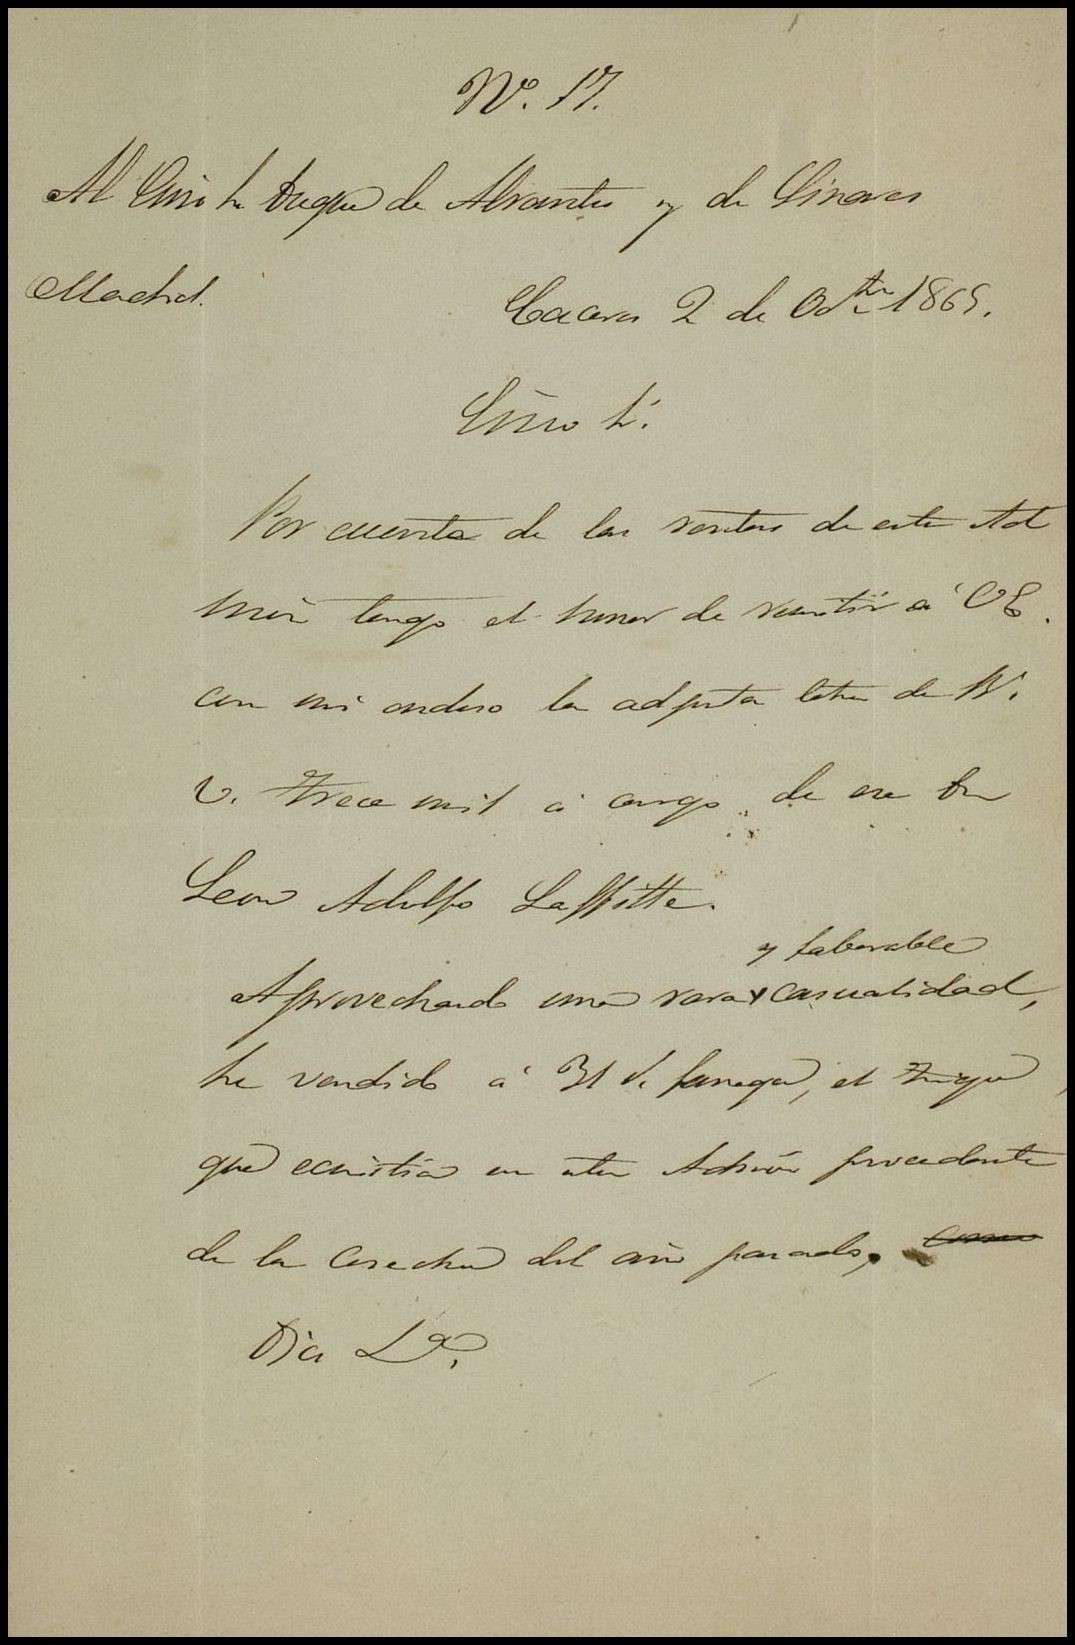 Nº. 17.
Al Exmo Sr Duque de Abrantes y de Linares
Madrid.
Caceres 2 de Oc.tre 1865.
Exmo Sr.
Por cuenta de las rentas de esta Ad
mon tengo el honor de remitir á VE.
con mi endoso la adjunta letra de R.
v. trece mil á cargo de ese Sr
Leon Adolfo Laffitte.
y faborable
Aprovechando una rara casualidad,
he vendido á 31 r. fanega, el trigo
que ecsistia en esta Admón procedente
de la cosecha del año pasado,
Dios &.